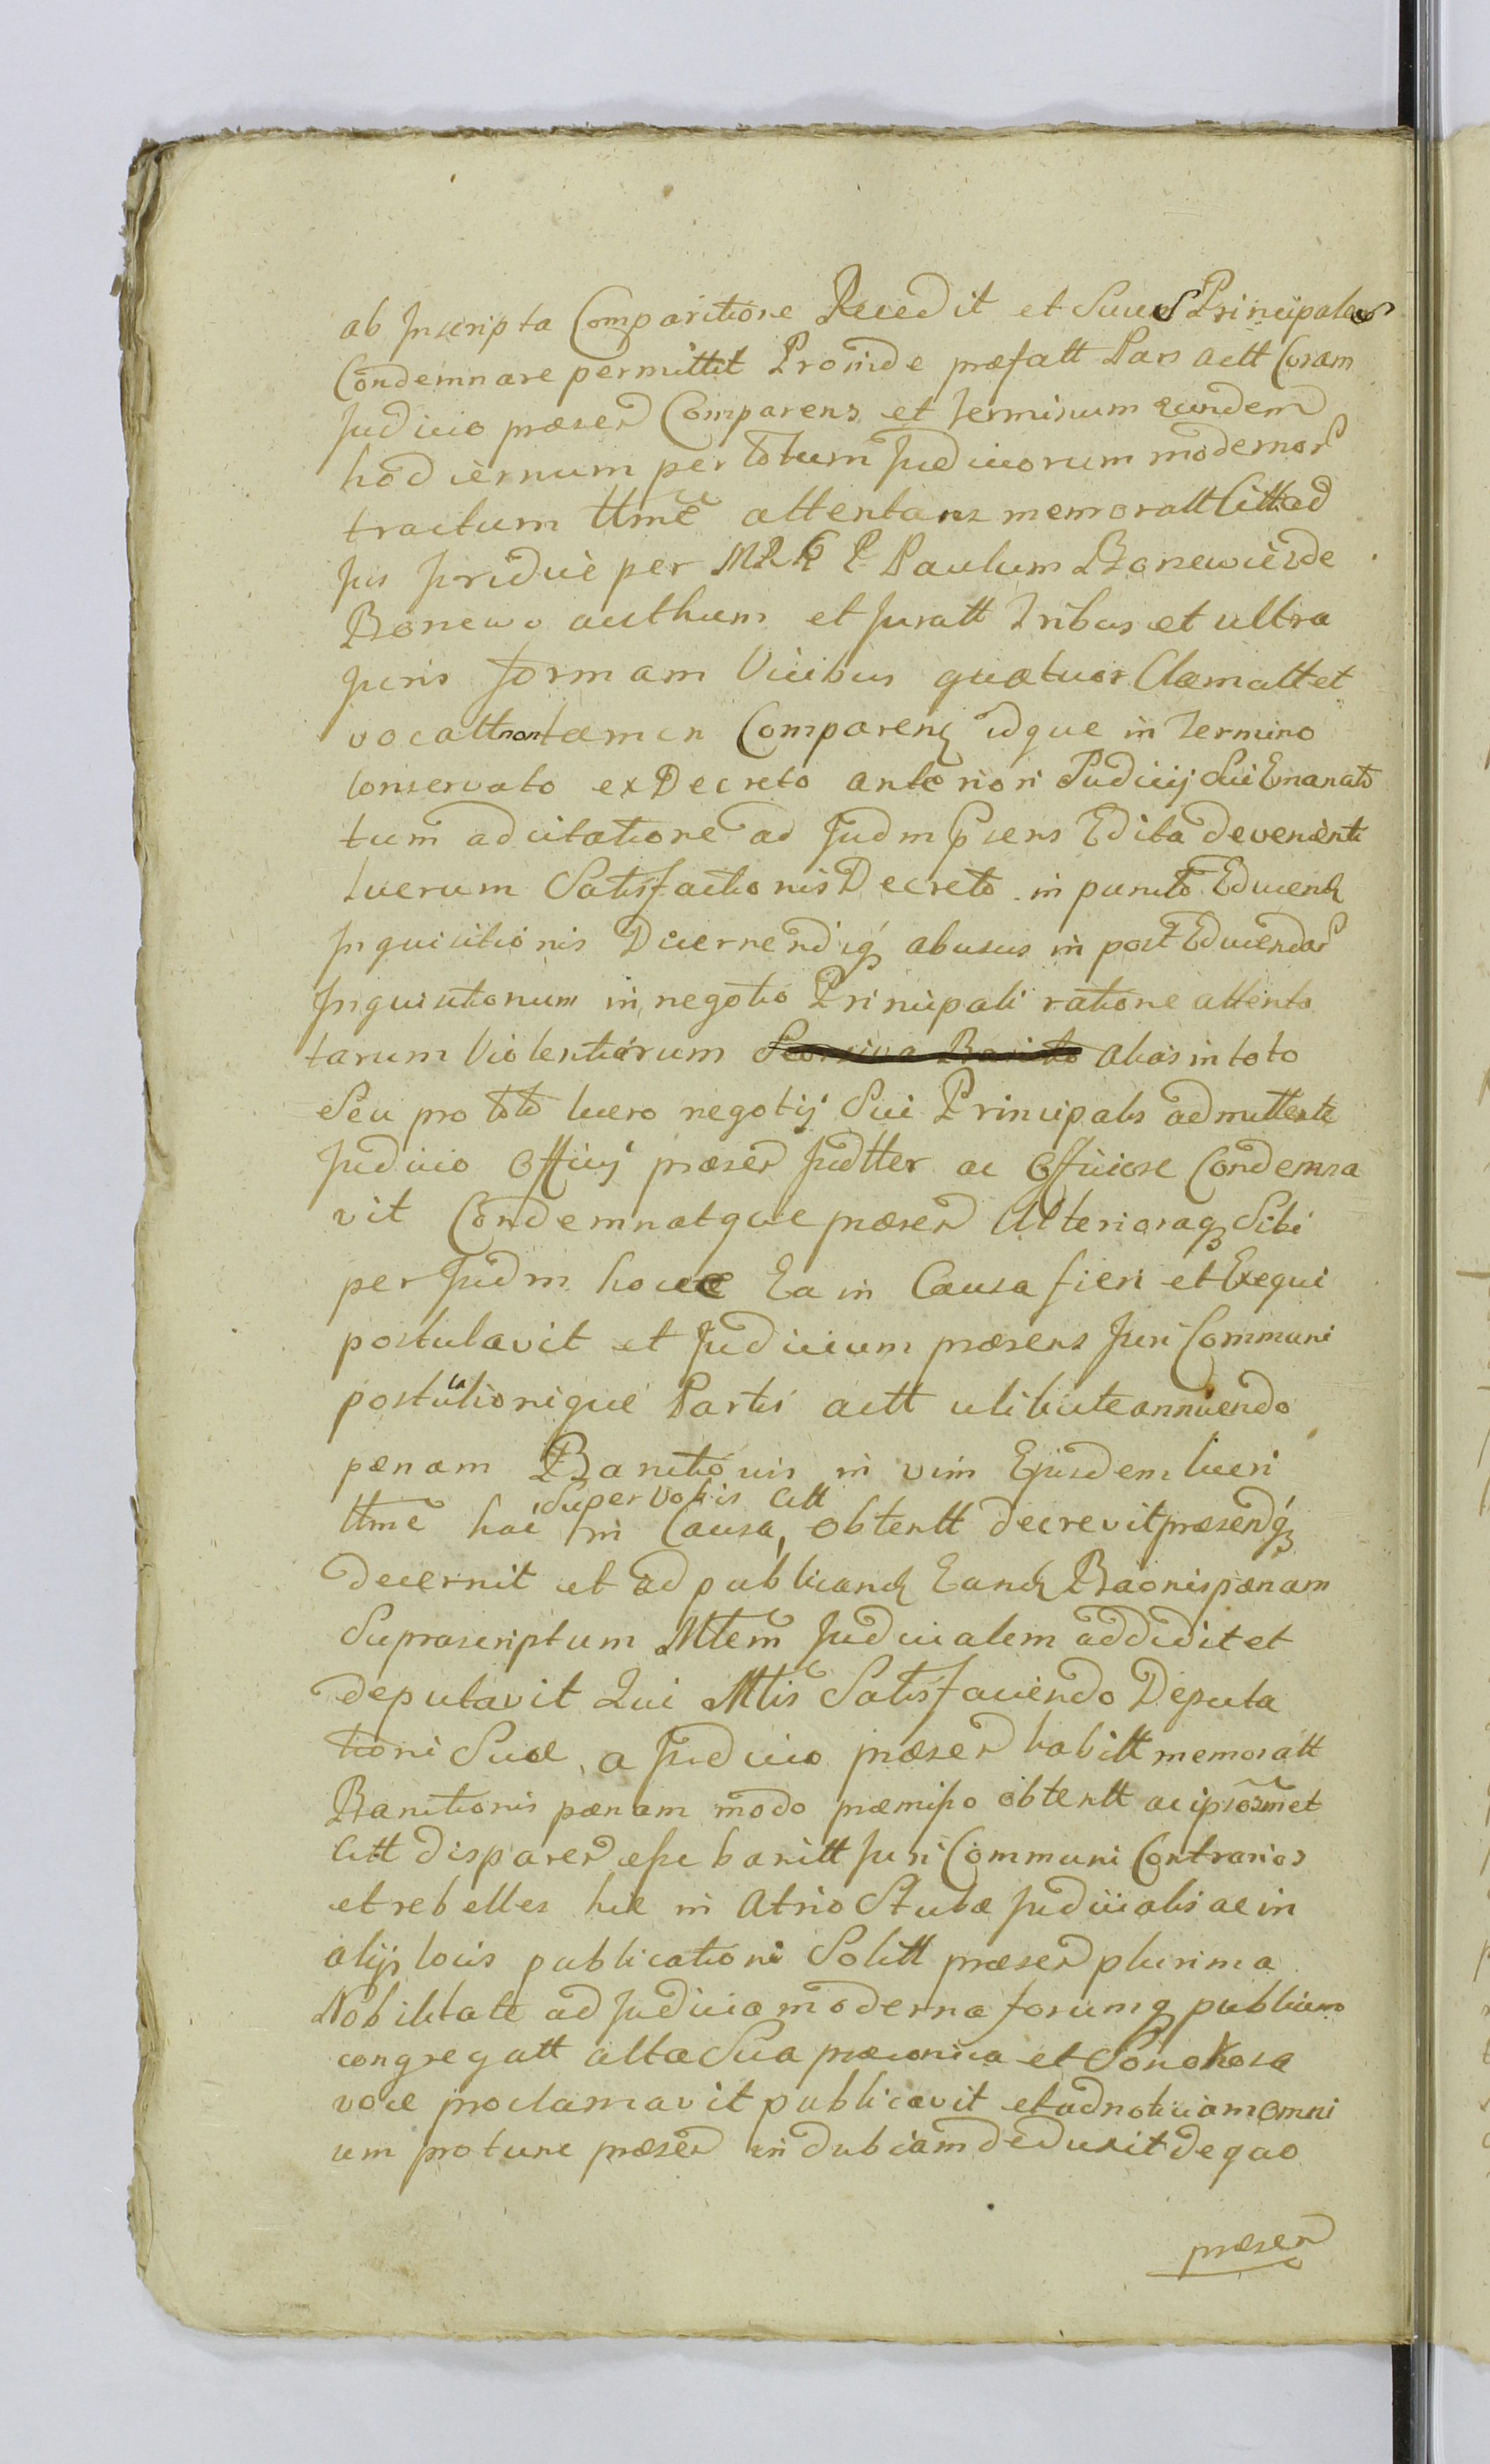 ab Inscripta Comparitione Recedit et Suus Principales
Condemnare permittit Proinde præfatt Pars actt Coram
Judicio præsen Comparens et terminum eundem
hodiernum per totum Judiciorum modernor
tractum ttme attentans memoratt Citt ad
Jus Juridice per MR G P Paulum Bonewicz de
Bonewo authum et Juratt Tribus et ultra
Juris formam Vicibus quatuor Clamatt et
vocatt non tamen Comparen idque in termino
conservato ex Decreto anteriori Judicij Sui Emanato
tum ad citatione ad Judm psens Edita devenienti
lucrum Satisfactionis Decreto in puncto Educend
Inquisitionis Dicernendiq abusus in post Educendar
Inquisitionum in negotio Principali ratione attento
tarum Violentiarum alias in toto
Seu pro toto lucro negotij Sui Principalis admittente
Judicio Officij præsen Judtter ac Officiose Condemna
vit Condemnatque præsen Ulterioraq Sibi
per Judm hocce Ea in Causa fieri et Exequi
postulavit et Judicium præsens Juri Communi
postulationique Partis actt uti licite annuendo
pænam Banitionis in vim Ejusdem lucri
ttme hac in Causa, Super Vobis Citt obtentt decrevit præsenq
decernit et ad publicand Eand Baonis pænam
Suprascriptum Mtem Judicialem addidit et
deputavit Qui Mtis Satisfaciendo Deputa
tioni Suæ, a Judicio præsen habitt memoratt
Banitionis pænam modo præmisso obtentt ac ipsosmet
Citt disparen esse banitt Juri Communi Contrarios
et rebelles hic in Atrio Stubæ Judicialis ac in
alijs locis publicationi Solitt præsen plurima
Nobilitate ad Judicia moderna forumq publicum
congregatt alta Sua præconica et Sonorosa
voce proclamavit publicavit et ad noticiam omni
um pro tunc præsen indubiam deduxit de quo
præsen